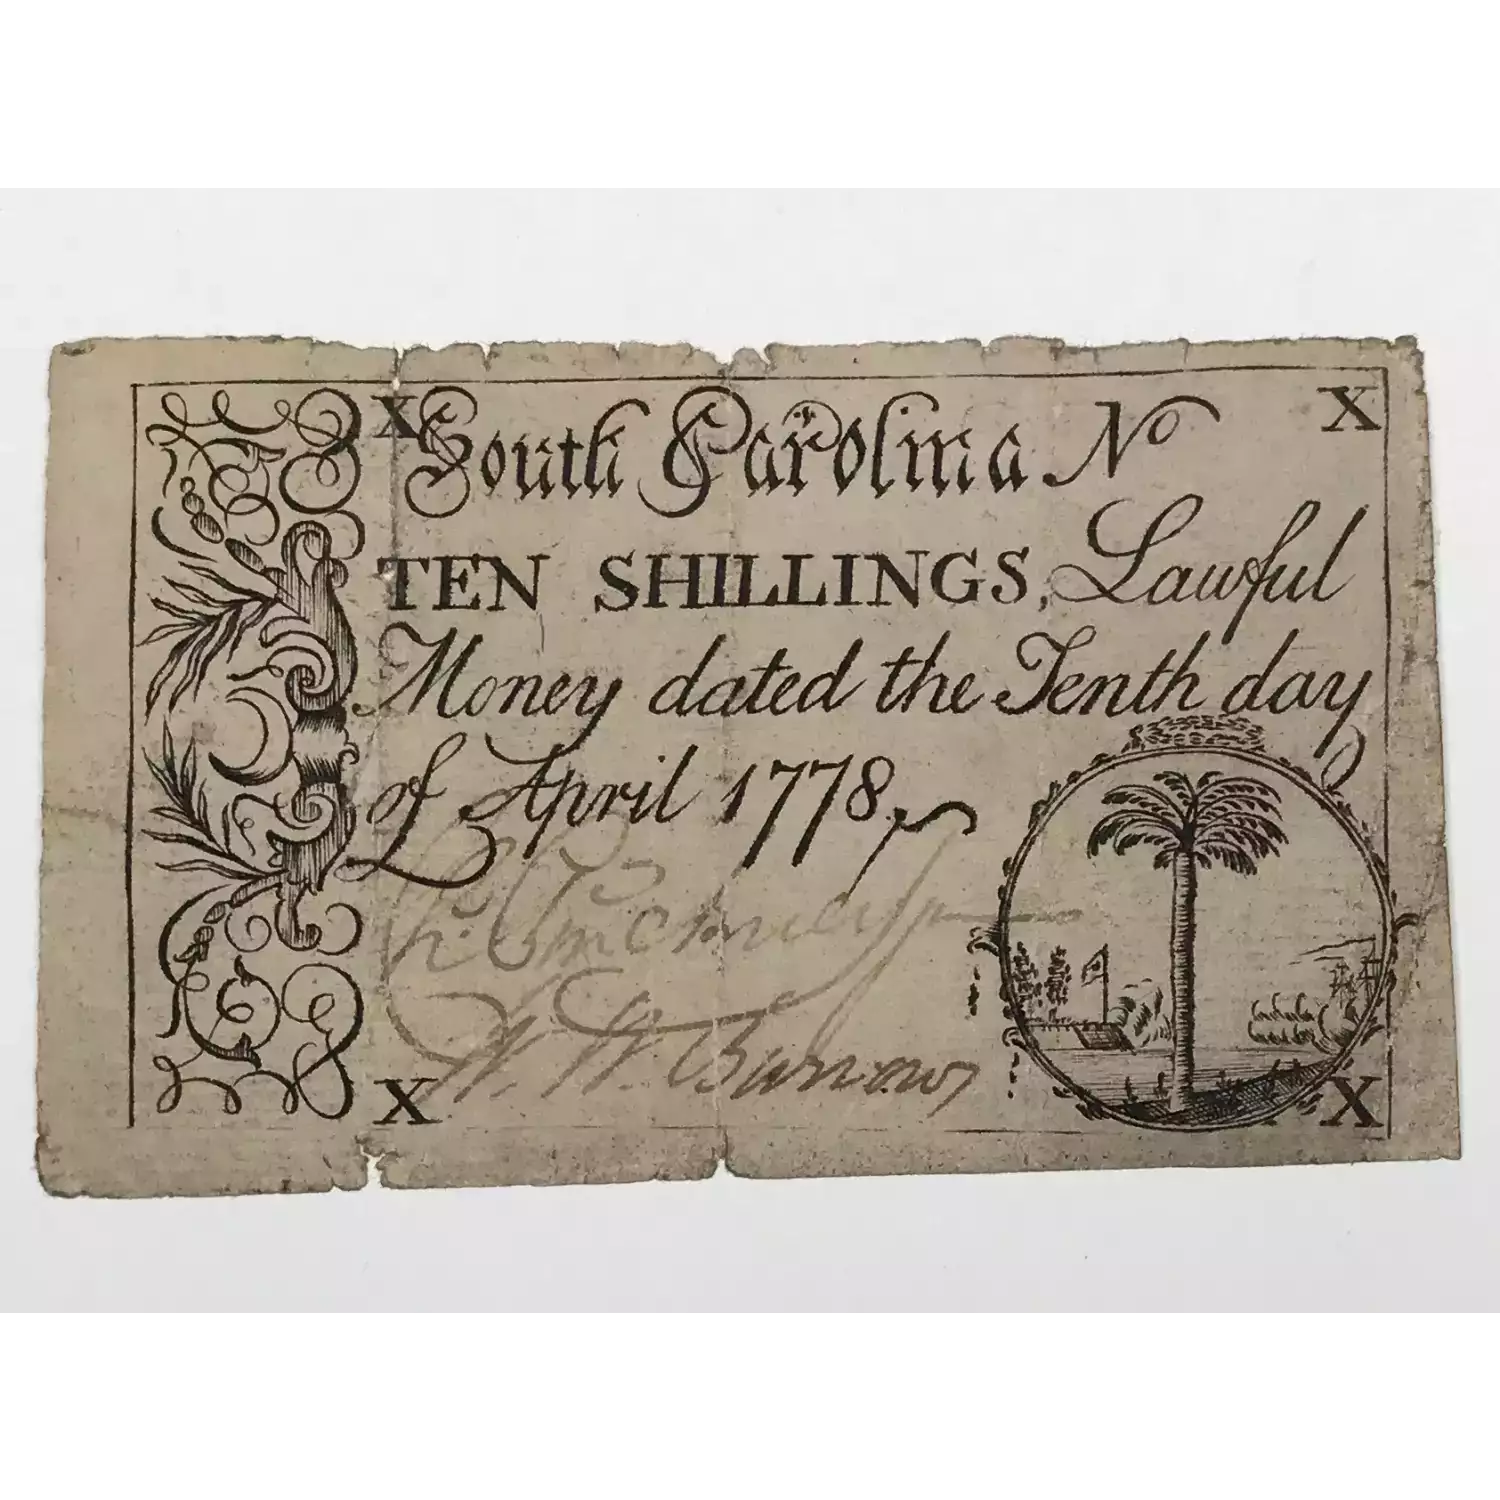 X South Carolina No X
TEN SHILLINGS, Lawful
Money dated the Tenth day
of April 1778.
W. W. Burrows
X X